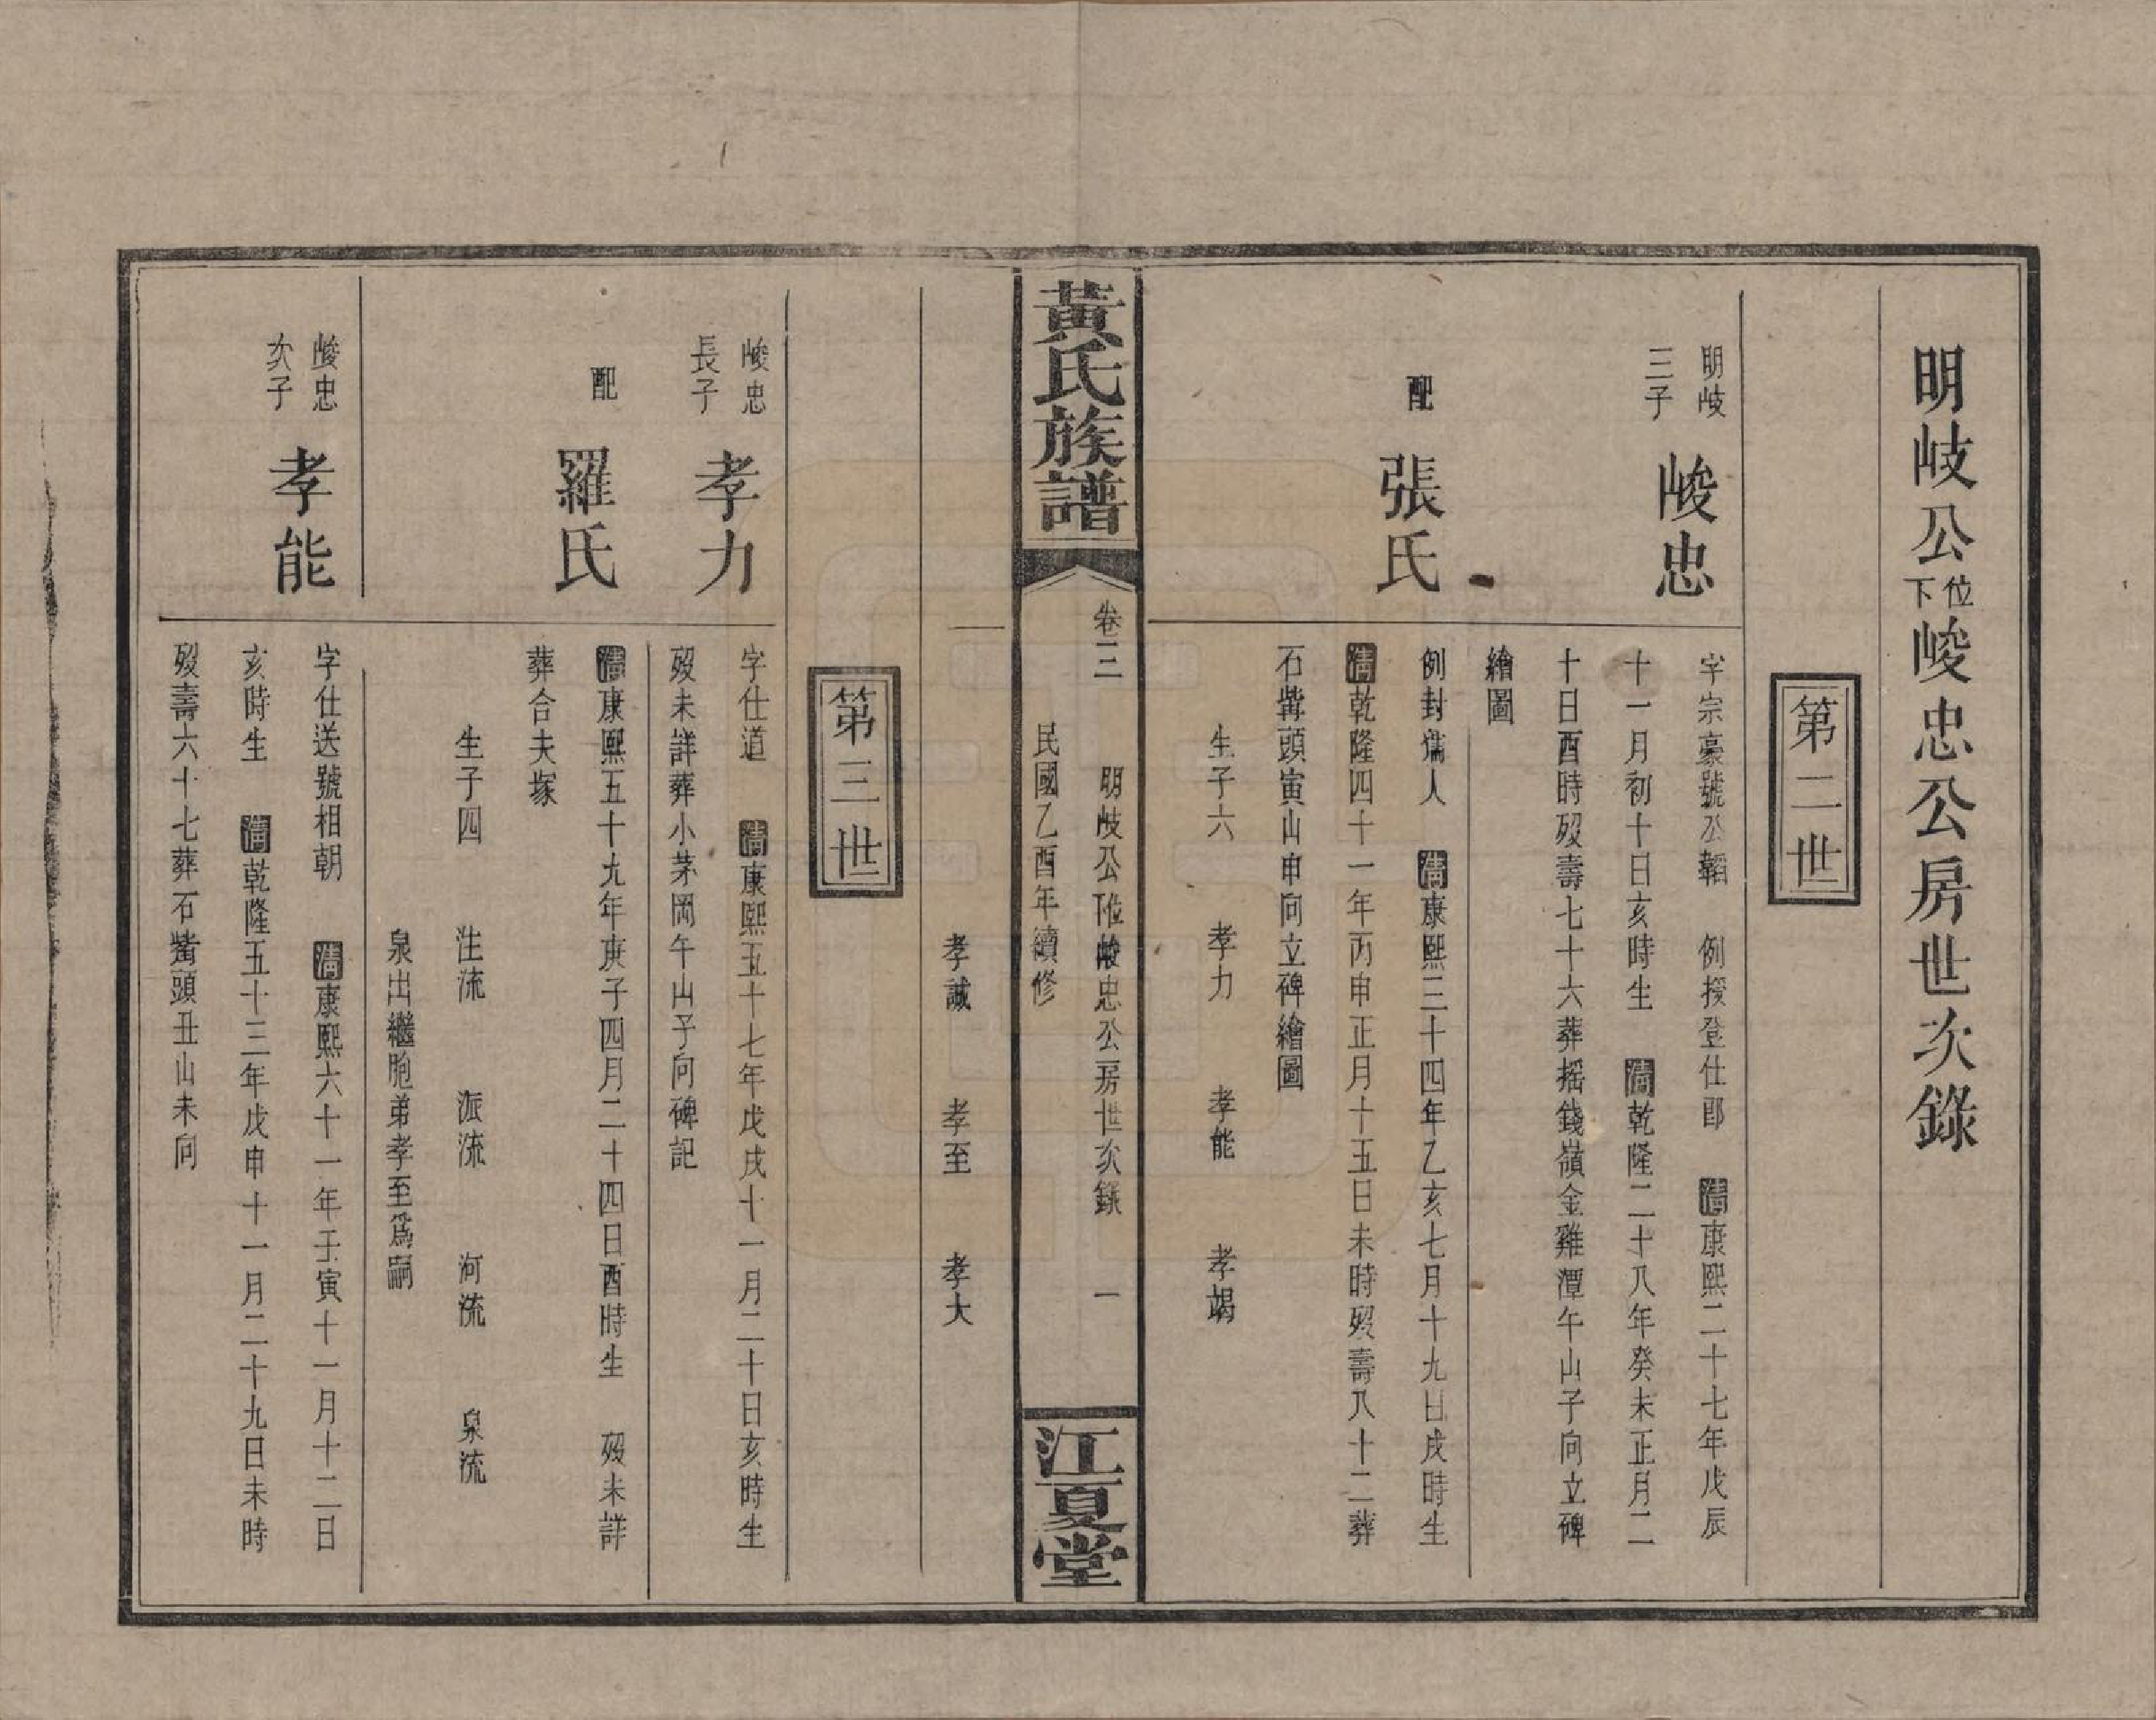 明岐公位下峻忠公房世次錄
第二世
明岐
三子
峻忠
字宗豪號公韜 例授登仕郎 清康熙二十七年戊辰
十一月初十日亥時生 清乾隆二十八年癸未正月二
十日酉時歿壽七十六葬摇錢嶺金雞潭午山子向立碑
繪圖
配
張氏
例封孺人 清康熙三十四年乙亥七月十九日戌時生
清乾隆四十一年丙申正月十五日未時歿壽八十二葬
石觜頭寅山申向立碑繪圖
生子六 孝力 孝能 孝竭
黃氏族譜
卷三 明岐公位下峻忠公房世次錄 一
民國乙酉年續修
江夏堂
孝誠 孝至 孝大
第三世
峻忠
長子
孝力
字仕道 清康熙五十七年戊戌十一月二十日亥時生
歿未詳葬小茅岡午山子向碑記
配
羅氏
清康熙五十九年庚子四月二十四日酉時生 歿未詳
葬合夫塚
生子四 注流 派流 河流 泉流
泉出繼胞弟孝至爲嗣
峻忠
次子
孝能
字仕送號相朝 清康熙六十一年壬寅十一月十二日
亥時生 清乾隆五十三年戊申十一月二十九日未時
歿壽六十七葬石觜頭丑山未向